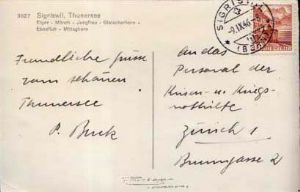 9027 Sigriswil, Thunersee
Eiger - Mönch - Jungfrau - Gletscherhorn -
Ebnefluh - Mittaghorn
SIGRISWIL
-9.IX.46
(BERN)
Freundliche Grüsse
vom schönen
Thunersee
P. Buck
An das
Personal der
Krisen- u. Kriegs-
nothilfe
Zürich 1
Brunngasse 2